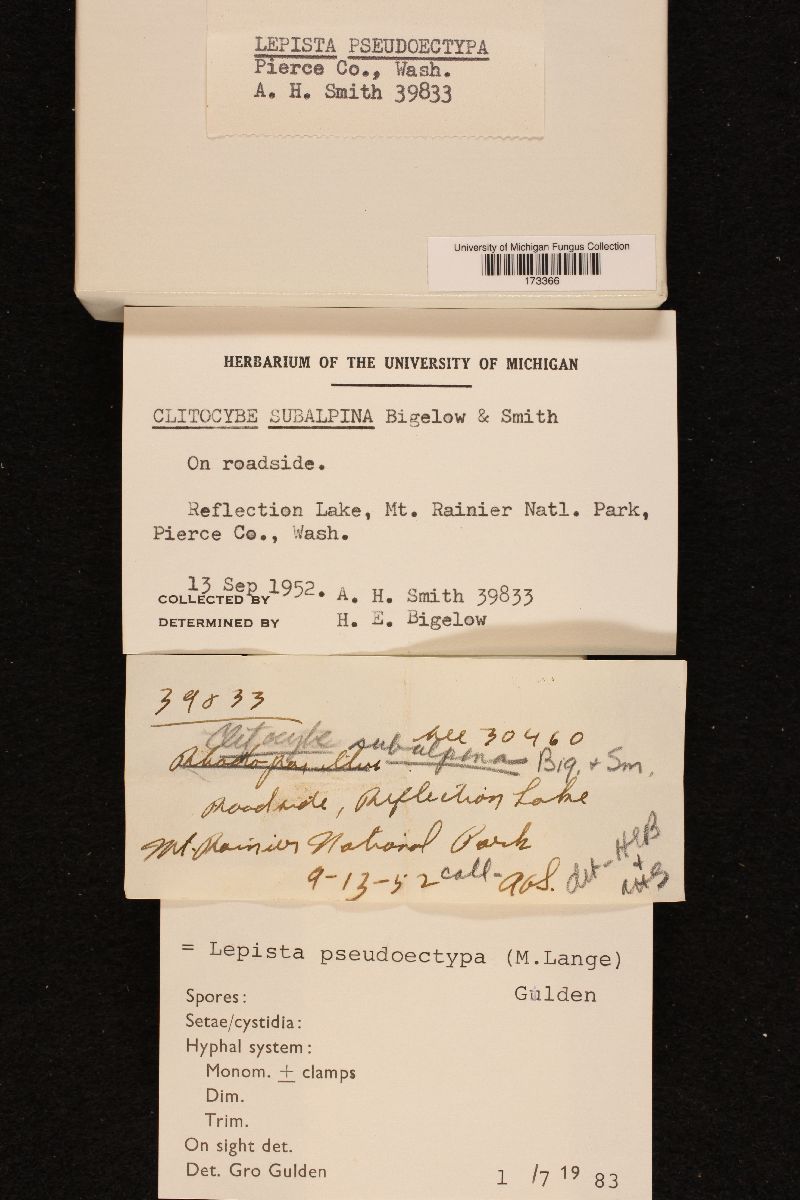 LEPISTA PSEUDOECTYPA
Pierce Co., Wash.
A. H. Smith 39833
University of Michigan Fungus Collection
173366
HERBARIUM OF THE UNIVERSITY OF MICHIGAN
CLITOCYBE SUBALPINA Bigelow & Smith
On roadside.
Reflection Lake, Mt. Rainier Natl. Park,
Pierce Co., Wash.
13 Sep 1952.
COLLECTED BY A. H. Smith 39833
DETERMINED BY H. E. Bigelow
39833
see 30460
Clitocybe subalpina Big. + Sm.
Rhodopaxillus
Roadside, Reflection Lake
Mt. Rainier National Park
9-13-52 coll- AHS. det- HEB
+
AHS
= Lepista pseudoectypa (M.Lange)
Gulden
Spores:
Setae/cystidia:
Hyphal system:
Monom. ± clamps
Dim.
Trim.
On sight det.
Det. Gro Gulden 1 /7 19 83